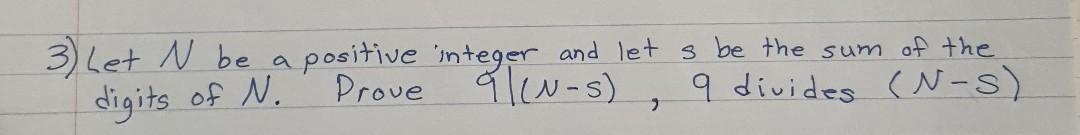 3) Let N be a positive integer and let s be the sum of the
digits of N. Prove 9|(N-s), 9 divides (N-s)